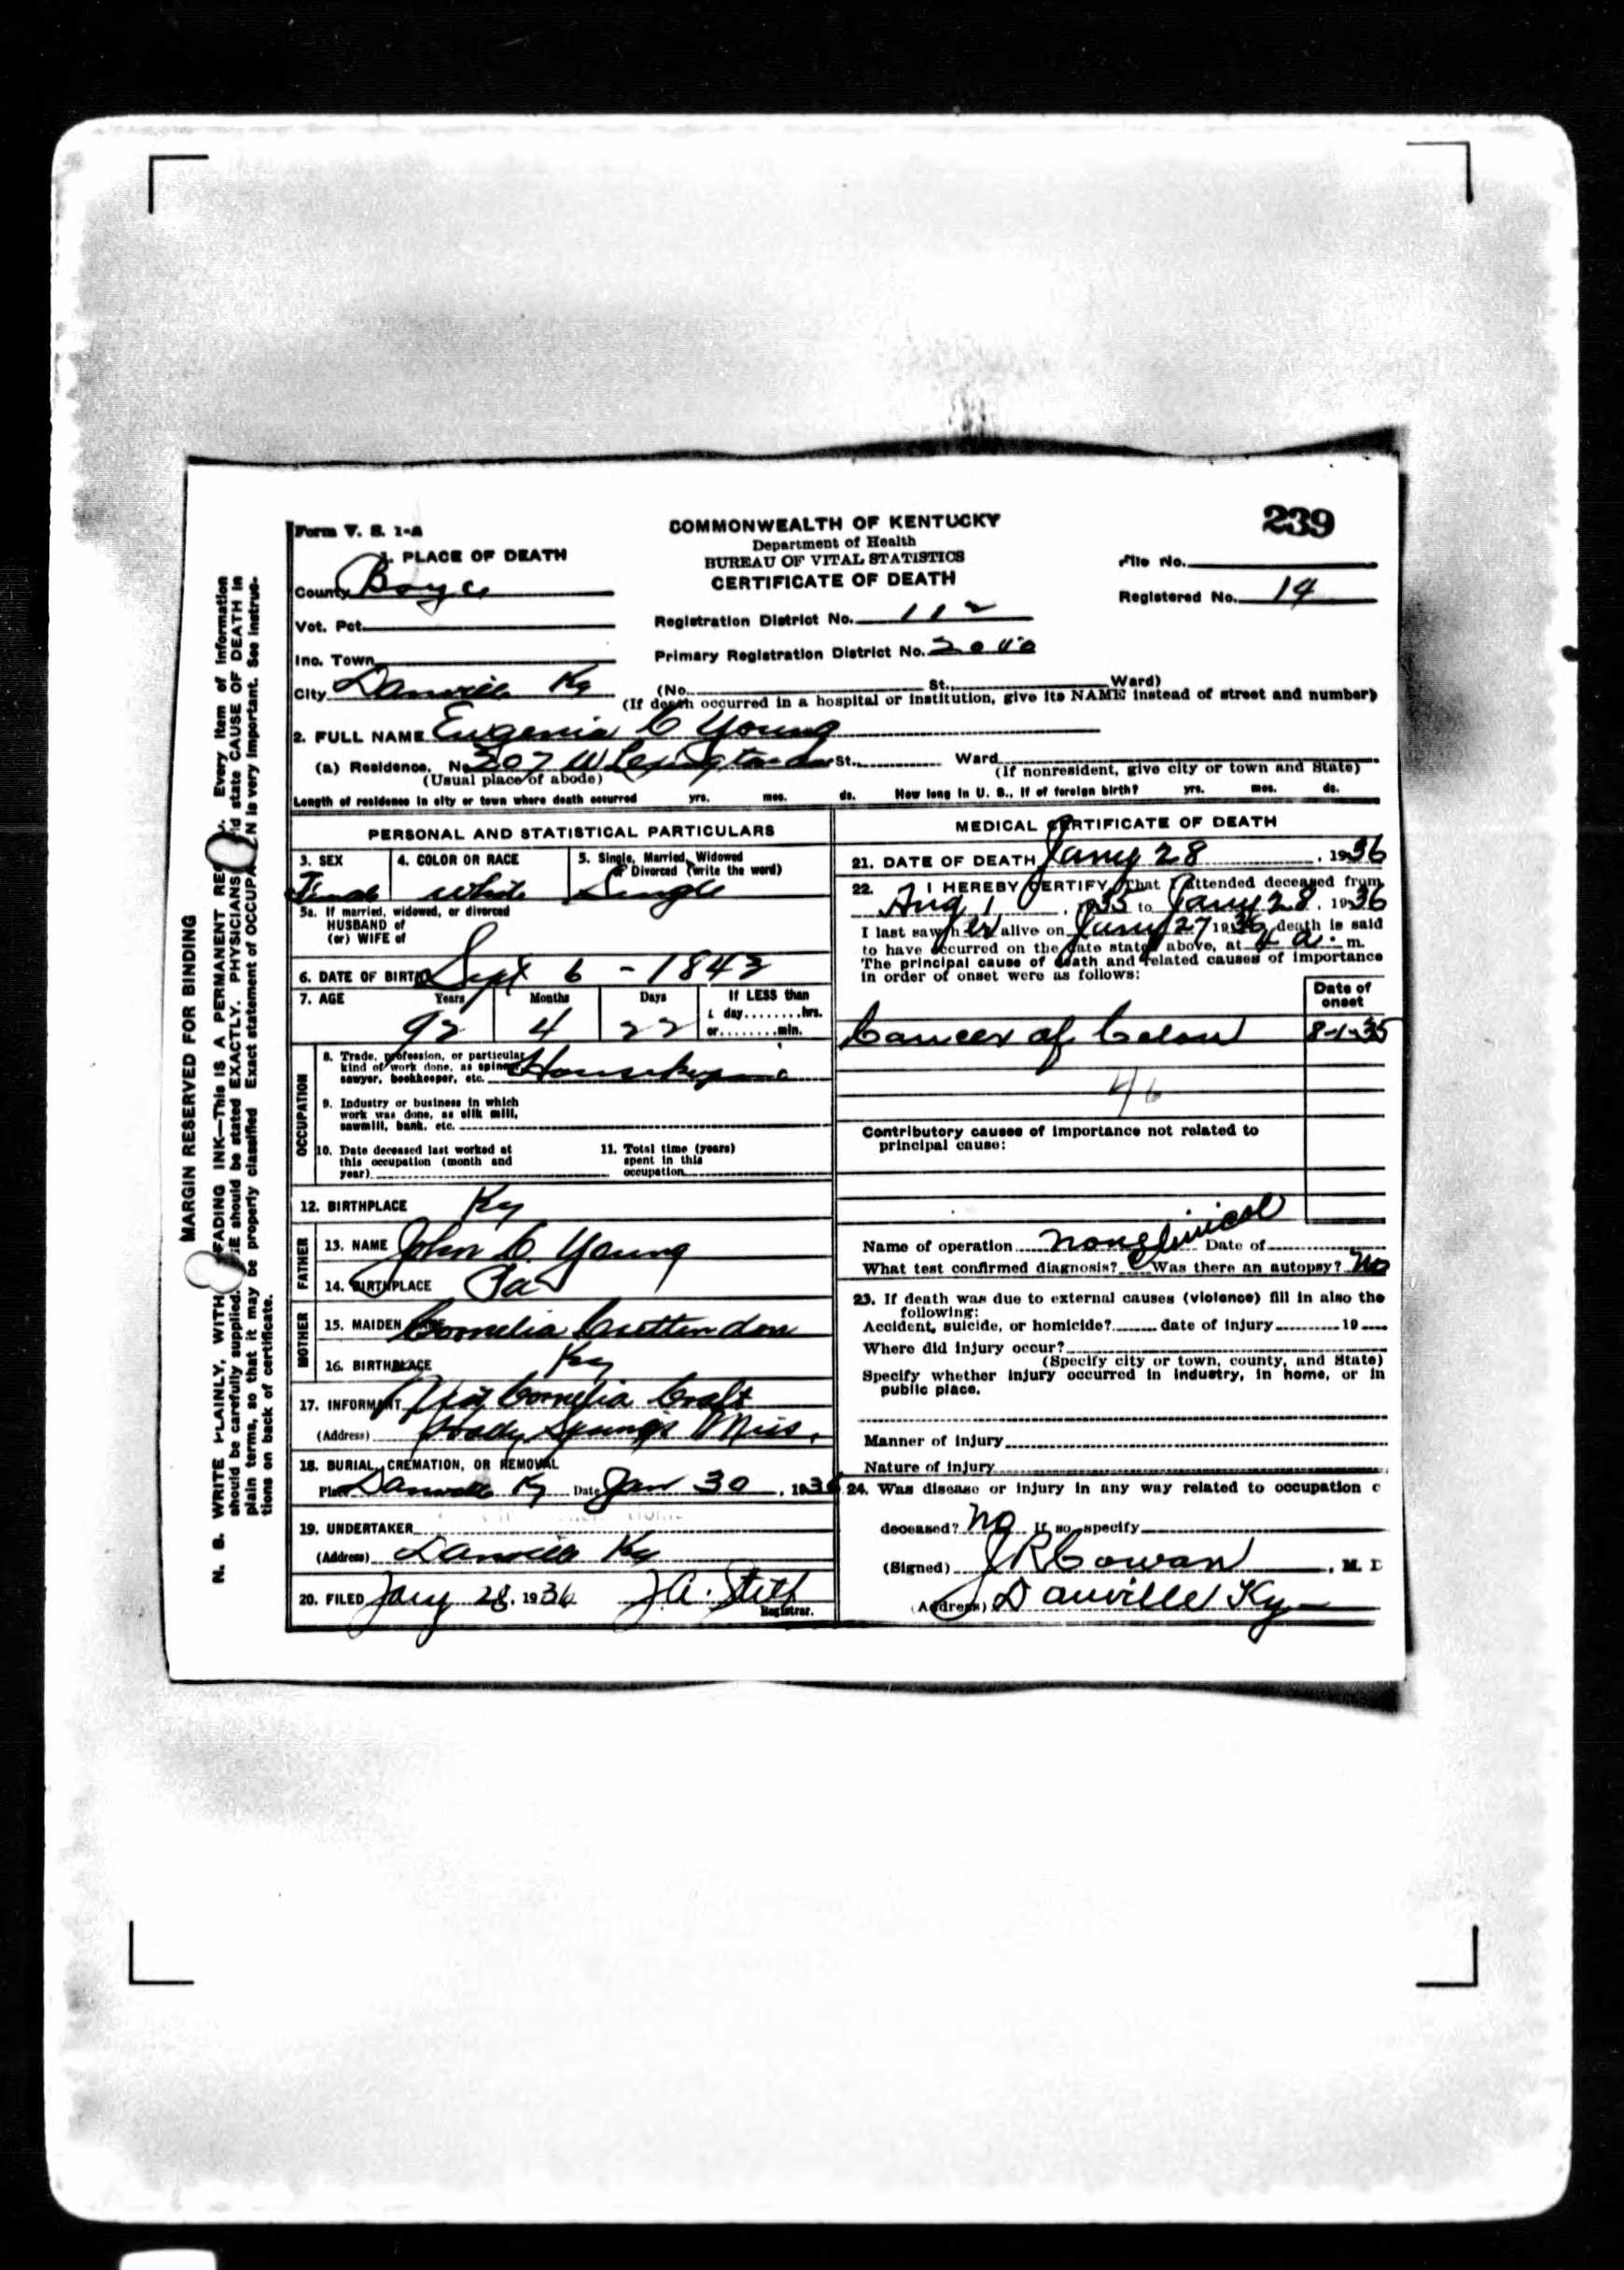 MARGIN RESERVED FOR BINDING
N. B. WRITE PLAINLY, WITH FADING INK—This IS A PERMANENT RE Every item of information
should be carefully supplied. E should be stated EXACTLY. PHYSICIANS ld state CAUSE OF DEATH in
plain terms, so that it may be properly classified Exact statement of OCCUPA N is very important. See instruc-
tions on back of certificate.
Form V. S. 1-A
COMMONWEALTH OF KENTUCKY
Department of Health
BUREAU OF VITAL STATISTICS
CERTIFICATE OF DEATH
239
1. PLACE OF DEATH
File No.
County Boyle
Registered No. 14
Vot. Pct.
Registration District No. 112
Inc. Town
Primary Registration District No.
City Danville Ky (No. St., Ward)
(If death occurred in a hospital or institution, give its NAME instead of street and number)
2. FULL NAME Eugenia C Young
(a) Residence. No 307 W Lexington St., Ward
(Usual place of abode) (If nonresident, give city or town and State)
Length of residence in city or town where death occurred yrs. mos. ds. How long in U. S., if of foreign birth? yrs. mos. ds.
PERSONAL AND STATISTICAL PARTICULARS
3. SEX 4. COLOR OR RACE 5. Single, Married, Widowed
or Divorced (write the word)
Female white Single
5a. If married, widowed, or divorced
HUSBAND of
(or) WIFE of
6. DATE OF BIRTH Sept 6 - 1843
7. AGE Years Months Days If LESS than
1 day........hrs.
92 4 22 or........min.
OCCUPATION
8. Trade, profession, or particular
kind of work done, as spinner
sawyer, bookkeeper, etc. Housekeeping
9. Industry or business in which
work was done, as silk mill,
sawmill, bank, etc.
10. Date deceased last worked at
this occupation (month and
year)
11. Total time (years)
spent in this
occupation
12. BIRTHPLACE Ky
FATHER
13. NAME John C Young
14. BIRTHPLACE Pa
MOTHER
15. MAIDEN NAME Cornelia Crittendon
16. BIRTHPLACE Ky
17. INFORMANT Cornelia Craft
(Address) Holly Springs Miss.
18. BURIAL, CREMATION, OR REMOVAL
Place Danville Ky Date Jan 30, 1936
19. UNDERTAKER
(Address) Danville Ky
20. FILED Jany 28, 1936 J A. Stith
Registrar.
MEDICAL CERTIFICATE OF DEATH
21. DATE OF DEATH Jany 28, 1936
22. I HEREBY CERTIFY, That I attended deceased from
Aug 1, 1935 to Jany 28, 1936
I last saw her alive on Jany 27 1936, death is said
to have occurred on the date stated above, at 4 a. m.
The principal cause of death and related causes of importance
in order of onset were as follows:
Date of
onset
Cancer of Colon 8-1-35
46
Contributory causes of importance not related to
principal cause:
Name of operation none Date of
What test confirmed diagnosis? clinical Was there an autopsy? No
23. If death was due to external causes (violence) fill in also the
following:
Accident, suicide, or homicide? date of injury 19
Where did injury occur?
(Specify city or town, county, and State)
Specify whether injury occurred in industry, in home, or in
public place.
Manner of injury
Nature of injury
24. Was disease or injury in any way related to occupation o
deceased? No If so, specify
(Signed) J R Cowan, M. D
(Address) Danville Ky